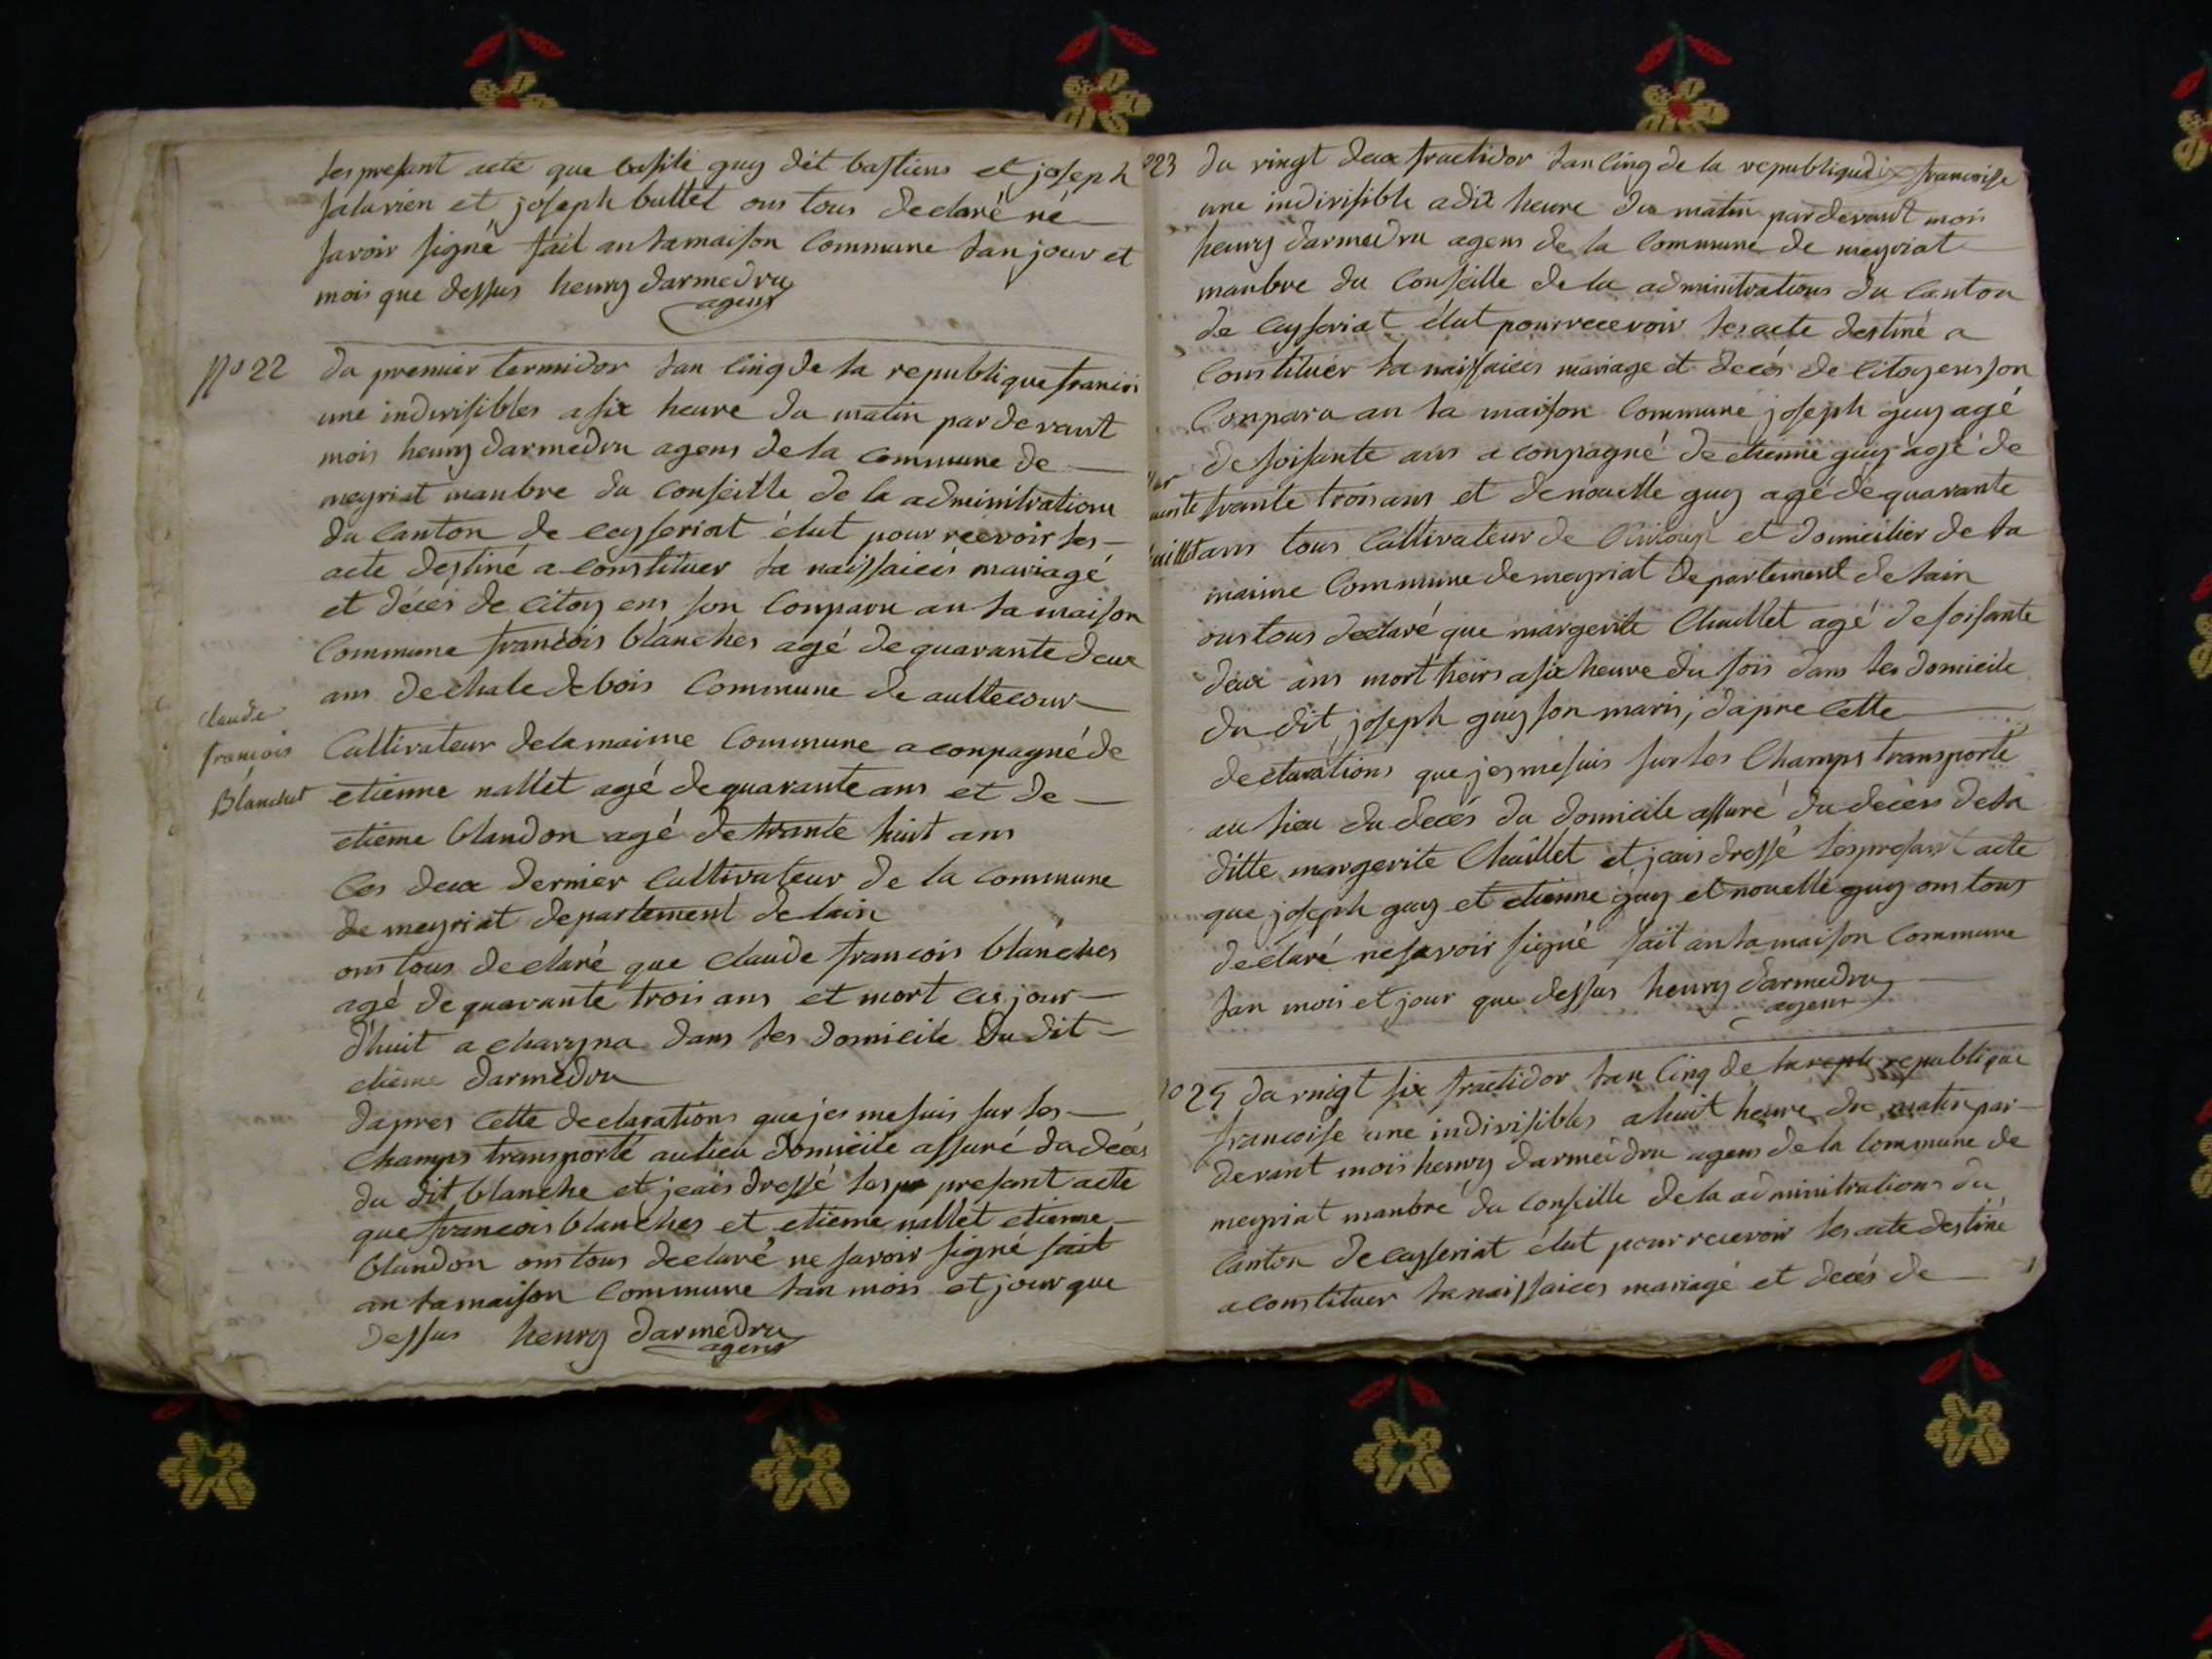 les presant acte que basile guy dit bastiens et joseph
salavien et joseph buttet ons tous declaré né
savoir signé fait an lamaison commune lan jour et
mois que dessus henry darmedru
agens
No 22
du premier termidor lan cinq de la republique francois
une indivisibles a six heure du matin par devant
mois henry darmedru agens de la commune de
meyriat manbre du conseille de la adminitrations
du canton de ceyseriat élut pour recevoir les
acte destiné a constituer la naissaices mariagé
et décés de citoyens son conparu an la maison
commune francois blanches agé de quarante deux
ans de chaledebois commune de aultecour
claude
francois
Blanchet
cultivateur delamaime commune aconpagné de
etienne nallet agé de quarante ans et de
etienne blandon agé de trante huit ans
les deux dernier cultivateur de la commune
de meyriat departement de lain
ons tous declaré que claude francois blanches
agé de quarante trois ans et mort ces jour
dhuit a charyna dans les domicile du dit
etienne darmedru
dapres cette declarations que jes me suis sur les
champs transporté aulieu domicile assuré du deces
du dit blanche et jeais dressé les presant acte
que francois blanches et etienne nallet etienne
blandon ons tous declaré ne savoir signé fait
an lamaison commune lan mois et jour que
dessus henry darmedru
agens
023 du vingt deux fructidor lan cinq de la republique francoise
une indivisible a dix heure du matin par devant mois
henry darmedru agens de la commune de meyriat
manbre du conseille de la adminitrations du canton
de ceyseriat élut pour recevoir les acte destiné a
constituer la naissaices mariage et decés de citoyens son
conparu an la maison commune joseph guy agé
de soisante ans aconpagné de etienne guy agé de
trante trois ans et de nouelle guy agé de quarante
ans tous cultivateur de et domicilier de la
maime commune de meyriat departement de lain
ons tous declaré que margerite Chaillet agé de soisante
deux ans mort heirs a six heure du sois dans les domicile
du dit joseph guy son maris, dapre cette
declarations que jes me suis sur les champs transporté
au lieu du decés du domicile assuré du deces de la
ditte margerite Chaillet et jeais dressé les presant acte
que joseph guy et etienne guy et nouelle guy ons tous
declaré ne savoir signé fait an la maison commune
lan mois et jour que dessus henry darmedru
agens
du vingt six fructidor lan cinq de la repu republique
francoise une indivisibles a huit heure du matin par
devant mois henry darmedru agens de la commune de
meyriat manbre du conseille de la adminitrations du
canton de ceyseriat élut pour recevoir les acte destiné
a constituer la naissaices mariagé et decés de